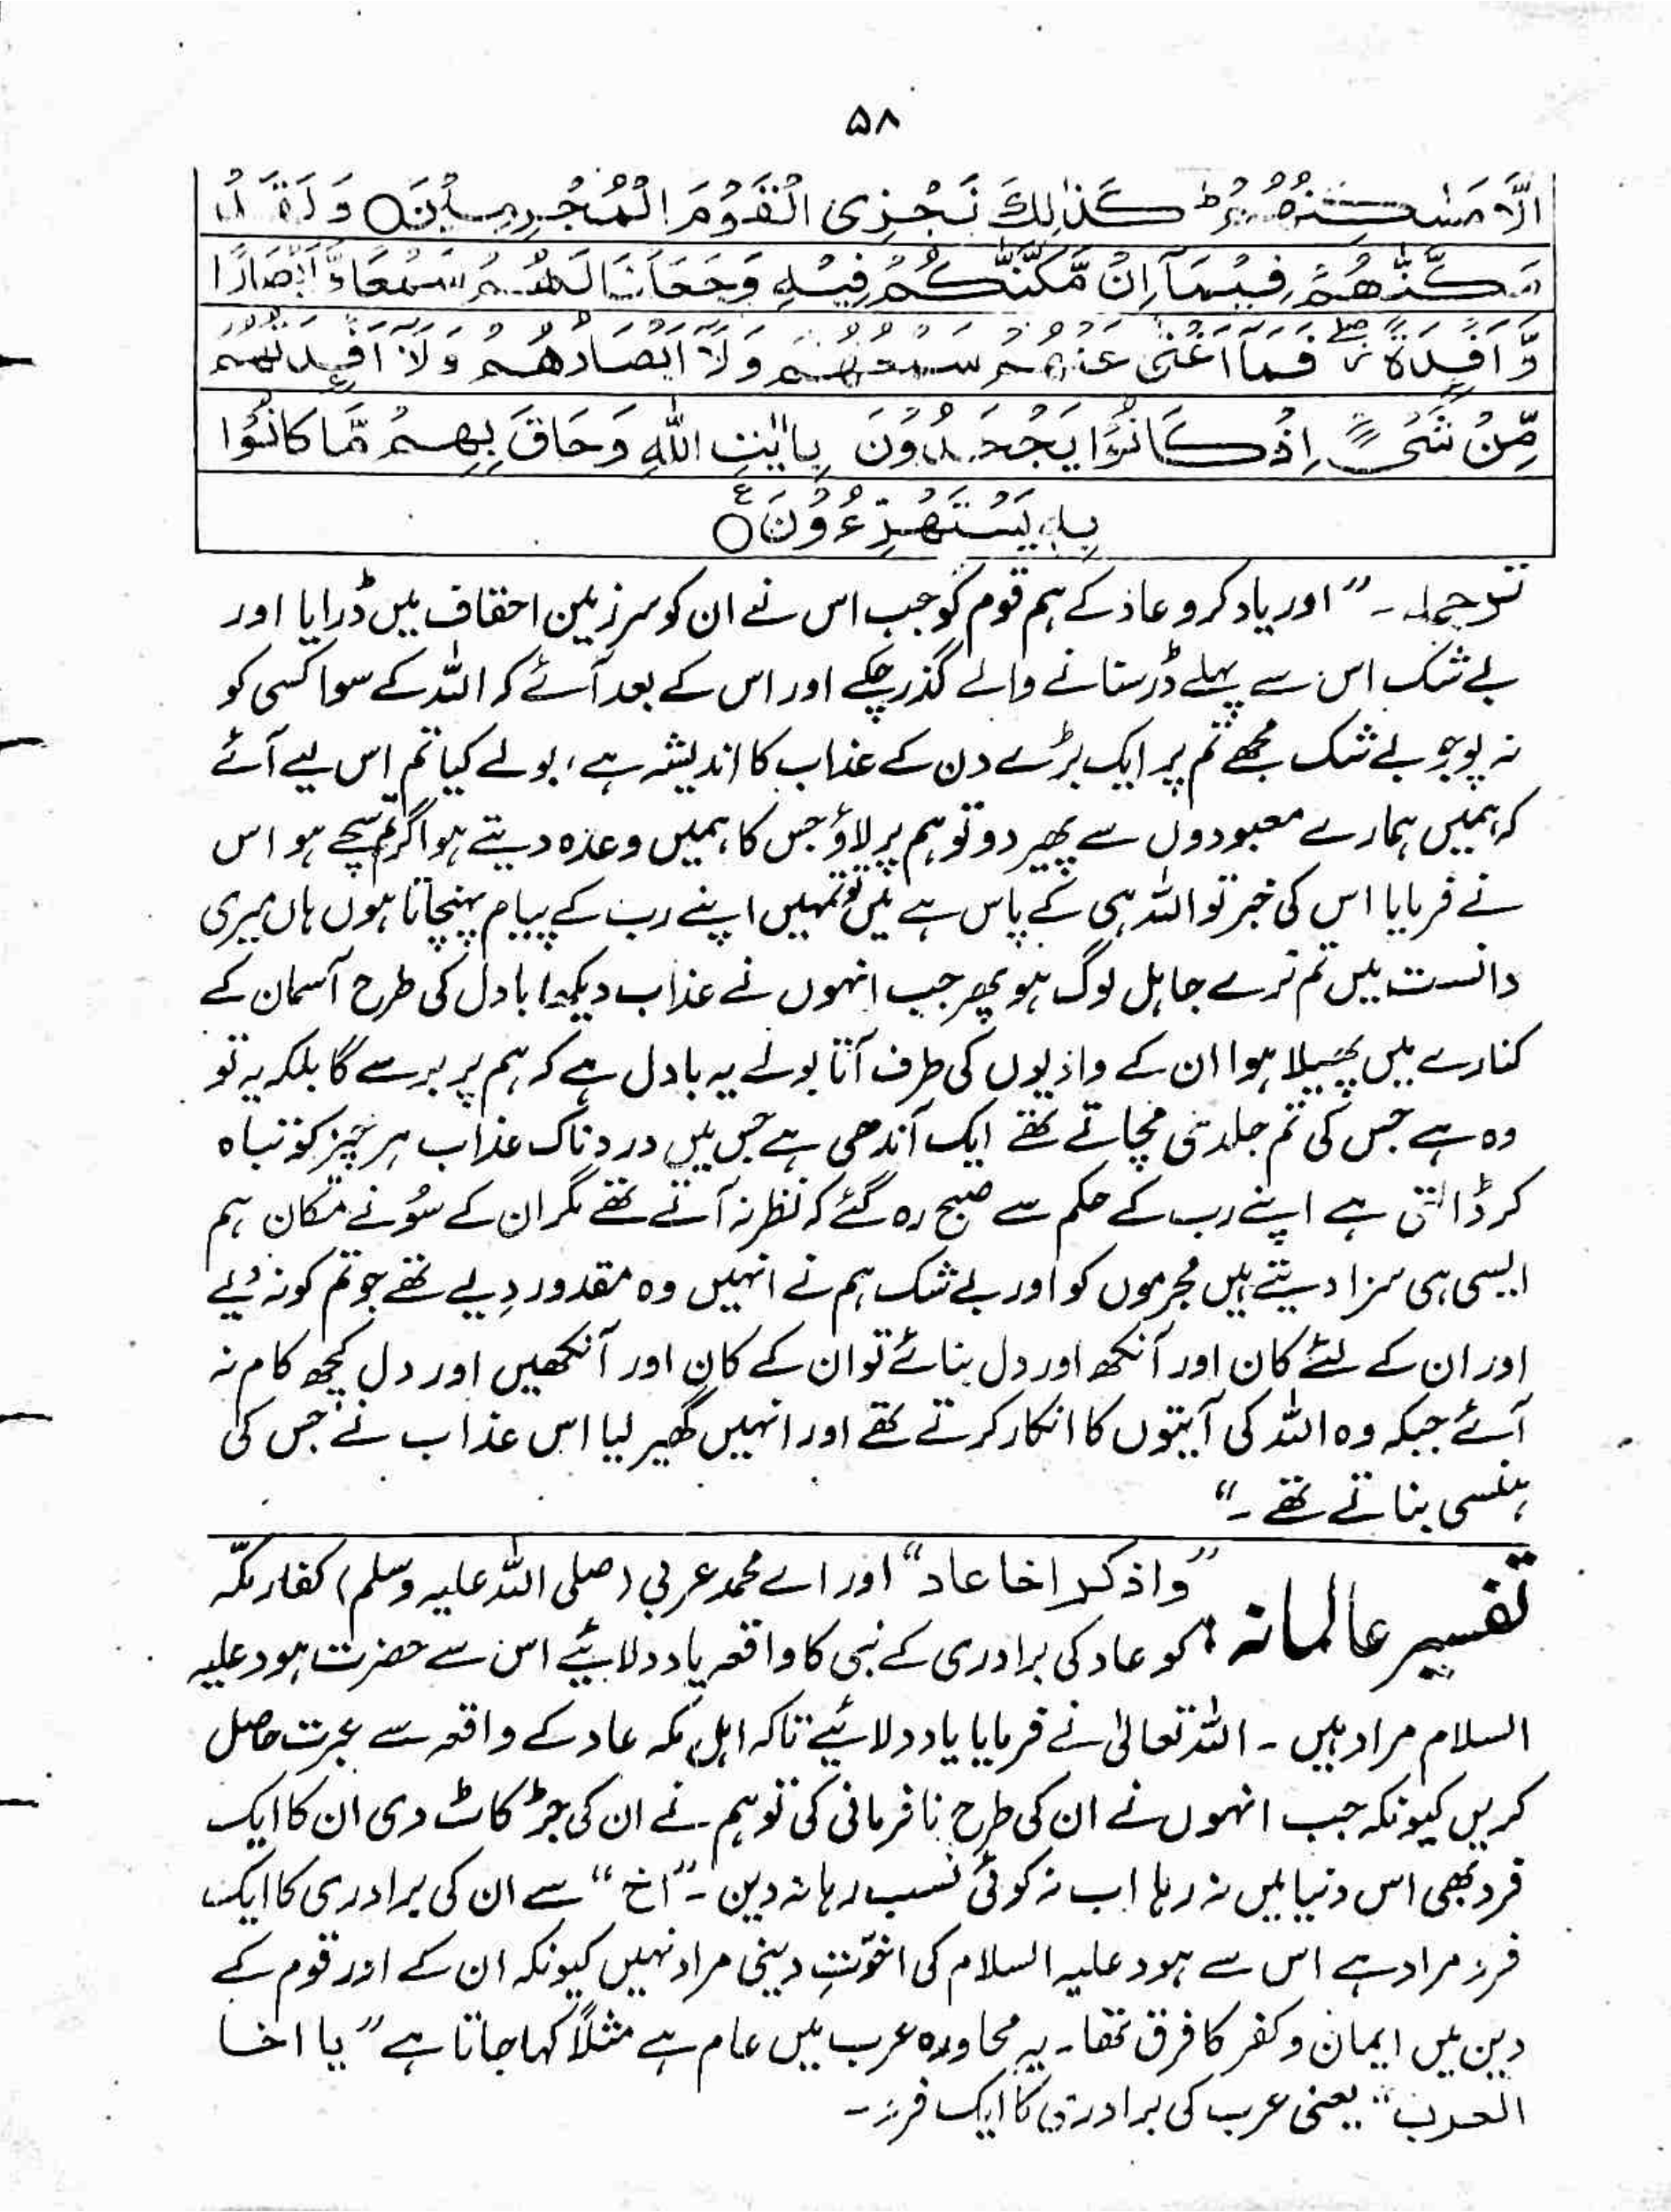 ۵۸
اِلَّا مَسٰكِنُهُمْ ؕ كَذٰلِكَ نَجْزِی الْقَوْمَ الْمُجْرِمِیْنَ ○ وَلَقَدْ
مَكَّنّٰهُمْ فِیْمَاۤ اِنْ مَّكَّنّٰكُمْ فِیْهِ وَجَعَلْنَا لَهُمْ سَمْعًا وَّ اَبْصَارًا
وَّ اَفْـِٕدَةً ۖ فَمَاۤ اَغْنٰی عَنْهُمْ سَمْعُهُمْ وَلَاۤ اَبْصَارُهُمْ وَلَاۤ اَفْـِٕدَتُهُمْ
مِّنْ شَیْءٍ اِذْ كَانُوْا یَجْحَدُوْنَ بِاٰیٰتِ اللّٰهِ وَحَاقَ بِهِمْ مَّا كَانُوْا
بِهٖ یَسْتَهْزِءُوْنَ ○ ع
ترجمہ ۔ ” اور یاد کرو عاد کے ہم قوم کو جب اس نے ان کو سرزمین احقاف میں ڈرایا اور
بے شک اس سے پہلے ڈر سنانے والے گذر چکے اور اس کے بعد آئے کہ اللہ کے سوا کسی کو
نہ پوجو بے شک مجھے تم پر ایک بڑے دن کے عذاب کا اندیشہ ہے، بولے کیا تم اس لیے آئے
کہ ہمیں ہمارے معبودوں سے پھیر دو تو ہم پر لاؤ جس کا ہمیں وعدہ دیتے ہو اگر تم سچے ہو اس
نے فرمایا اس کی خبر تو اللہ ہی کے پاس ہے میں تو تمہیں اپنے رب کے پیام پہنچاتا ہوں ہاں میری
دانست میں تم نرے جاہل لوگ ہو پھر جب انہوں نے عذاب دیکھا بادل کی طرح آسمان کے
کنارے میں پھیلا ہوا ان کے وادیوں کی طرف آتا بولے یہ بادل ہے کہ ہم پر برسے گا بلکہ یہ تو
وہ ہے جس کی تم جلدی مچاتے تھے ایک آندھی ہے جس میں دردناک عذاب ہر چیز کو تباہ
کر ڈالتی ہے اپنے رب کے حکم سے صبح رہ گئے کہ نظر نہ آتے تھے مگر ان کے سُونے مکان ہم
ایسی ہی سزا دیتے ہیں مجرموں کو اور بے شک ہم نے انہیں وہ مقدور دِیے تھے جو تم کو نہ دِیے
اور ان کے لئے کان اور آنکھ اور دل بنائے تو ان کے کان اور آنکھیں اور دل کچھ کام نہ
آئے جبکہ وہ اللہ کی آیتوں کا انکار کرتے تھے اور انہیں گھیر لیا اس عذاب نے جس کی
ہنسی بناتے تھے ۔“
تفسیر عالمانہ : ”واذکر اخا عاد“ اور اے محمد عربی (صلی اللہ علیہ وسلم) کفار مکّہ
کو عاد کی برادری کے نبی کا واقعہ یاد دلائیے اس سے حضرت ہود علیہ
السلام مراد ہیں ۔ اللہ تعالیٰ نے فرمایا یاد دلائیے تاکہ اہل مکہ عاد کے واقعہ سے عبرت حاصل
کریں کیونکہ جب انہوں نے ان کی طرح نافرمانی کی تو ہم نے ان کی جڑ کاٹ دی ان کا ایک
فرد بھی اس دنیا میں نہ رہا اب نہ کوئی نسب رہا نہ دین ۔ ”اخ“ سے ان کی برادری کا ایک
فرد مراد ہے اس سے ہود علیہ السلام کی اخوّتِ دینی مراد نہیں کیونکہ ان کے اور قوم کے
دین میں ایمان و کفر کا فرق تھا۔ یہ محاورہ عرب میں عام ہے مثلاً کہا جاتا ہے ”یا اخا
العرب“ یعنی عرب کی برادری کا ایک فرد۔